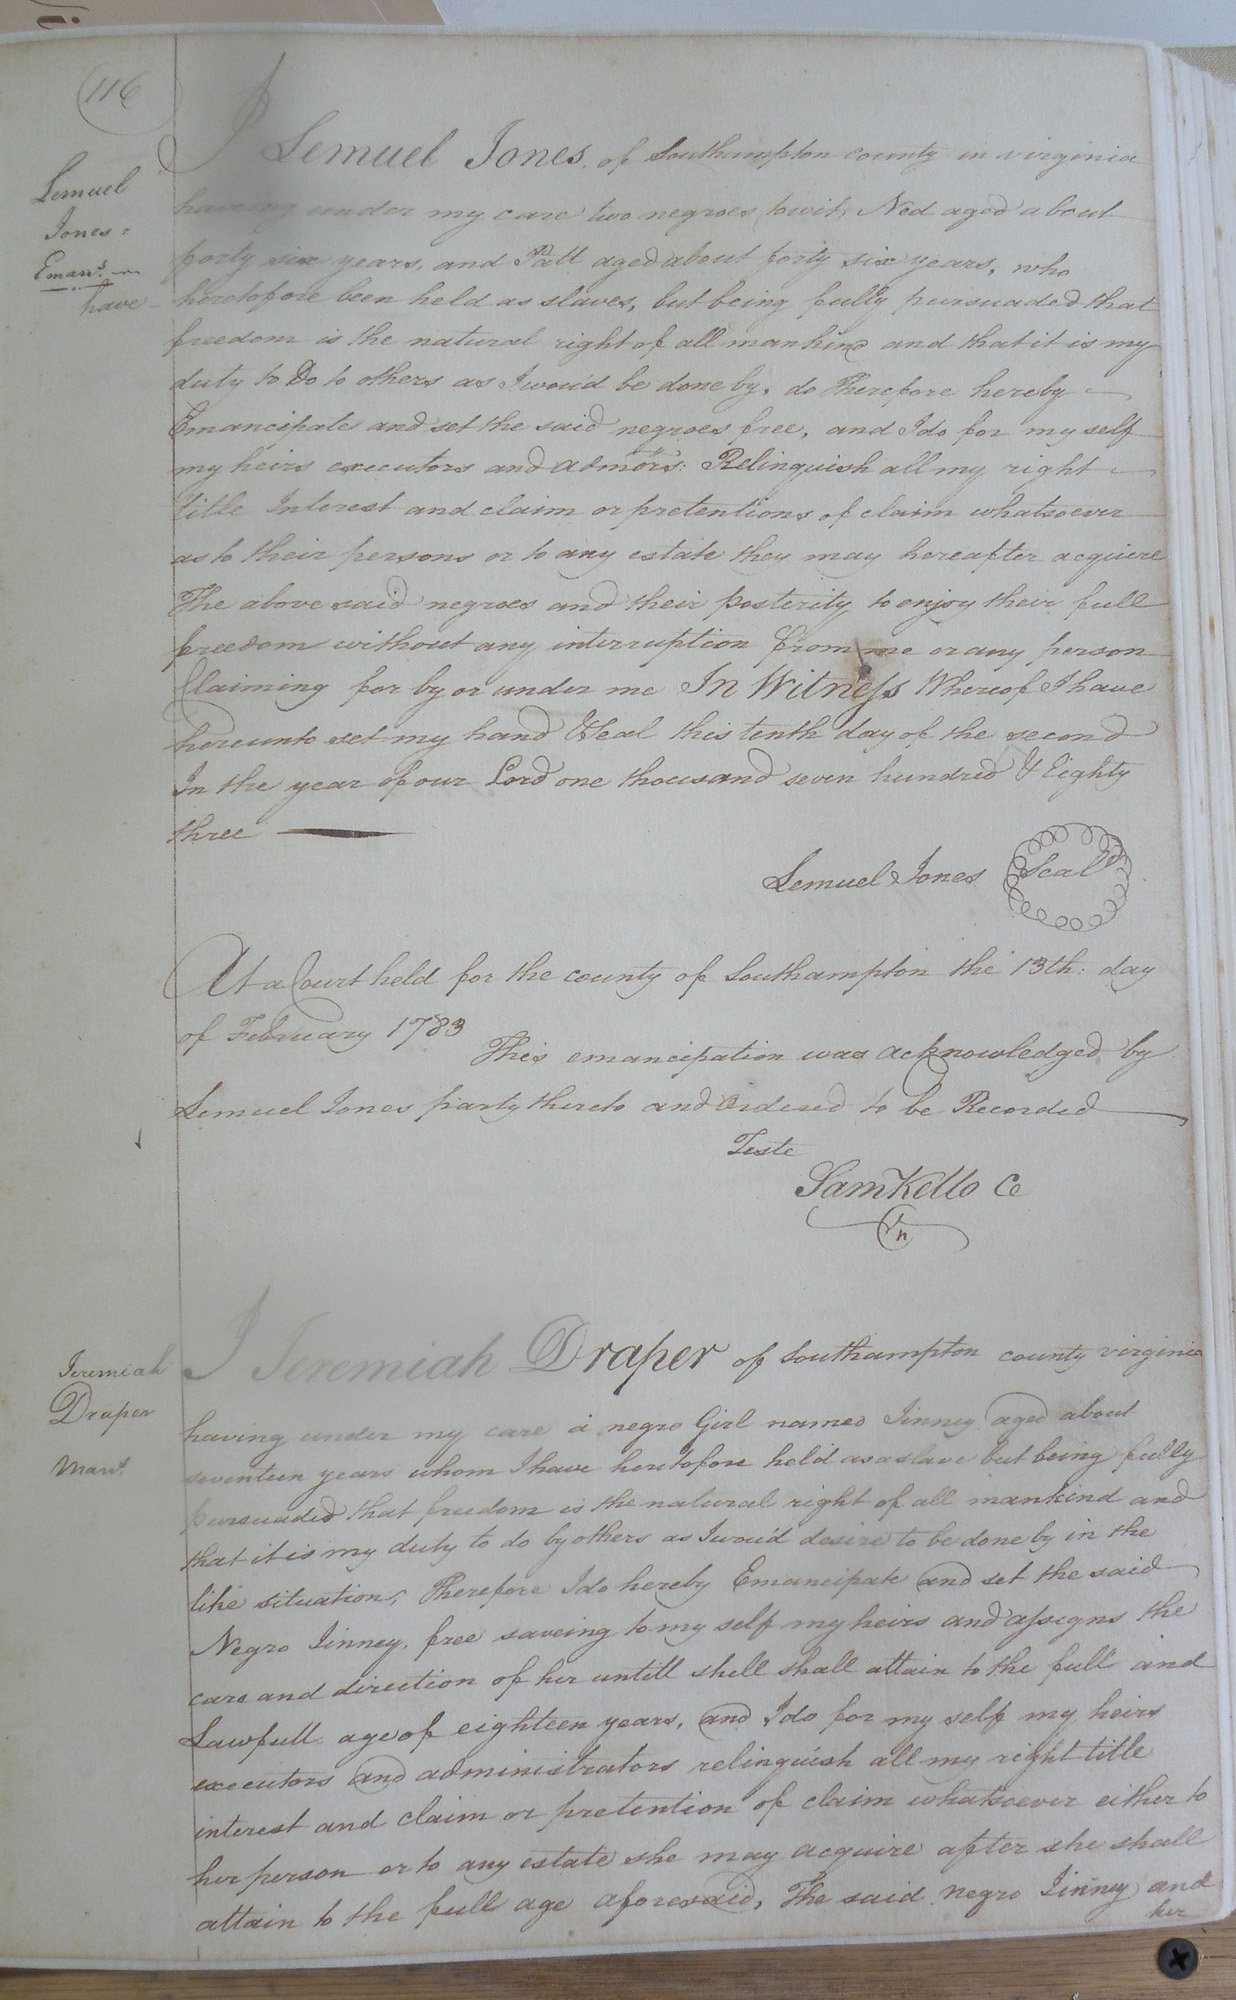 116
Lemuel
Jones.
Eman.s
I Lemuel Jones, of Southampton county in virginia
having under my care two negroes, towit, Ned aged about
forty six years, and Patt aged about forty six years, who
have heretofore been held as slaves, but being fully pursuaded that
freedom is the natural right of all mankind and that it is my
duty to Do to others as I wou'd be done by, do Therefore hereby
Emancipate and set the said negroes free, and I do for my self
my heirs executors and admors: Relinquish all my right
title Interest and claim or pretentions of claim whatsoever
as to their persons or to any estate they may hereafter acquiere
The above said negroes and their posterity to enjoy their full
freedom without any interruption from me or any person
Claiming for by or under me In Witness Whereof I have
hereunto set my hand & Seal this tenth day of the second
In the year of our Lord one thousand seven hundred & Eighty
three
Lemuel Jones Seal
At a Court held for the county of Southampton the 13th: day
of February 1783
This emancipation was acknowledged by
Lemuel Jones party thereto and Ordered to be Recorded
Teste
Sam Kello Ce
Jeremiah
Draper
Man.s
I Jeremiah Draper of Southampton county virginia
having under my care a negro Girl named Jinney aged about
seventeen years whom I have heretofore held as a slave but being fully
pursuaded that freedom is the natural right of all mankind and
that it is my duty to do by others as I wou'd desire to be done by in the
like situation, Therefore I do hereby Emancipate and set the said
Negro Jinney, free saveing to my self my heirs and assegns the
care and direction of her untill shell shall attain to the full and
Lawfull age of eighteen years, and I do for my self my heirs
executors and administrators relinquish all my right title
interest and claim or pretention of claim whatsoever either to
her person or to any estate she may acquire after she shall
attain to the full age aforesaid, The said negro Jinney and
her